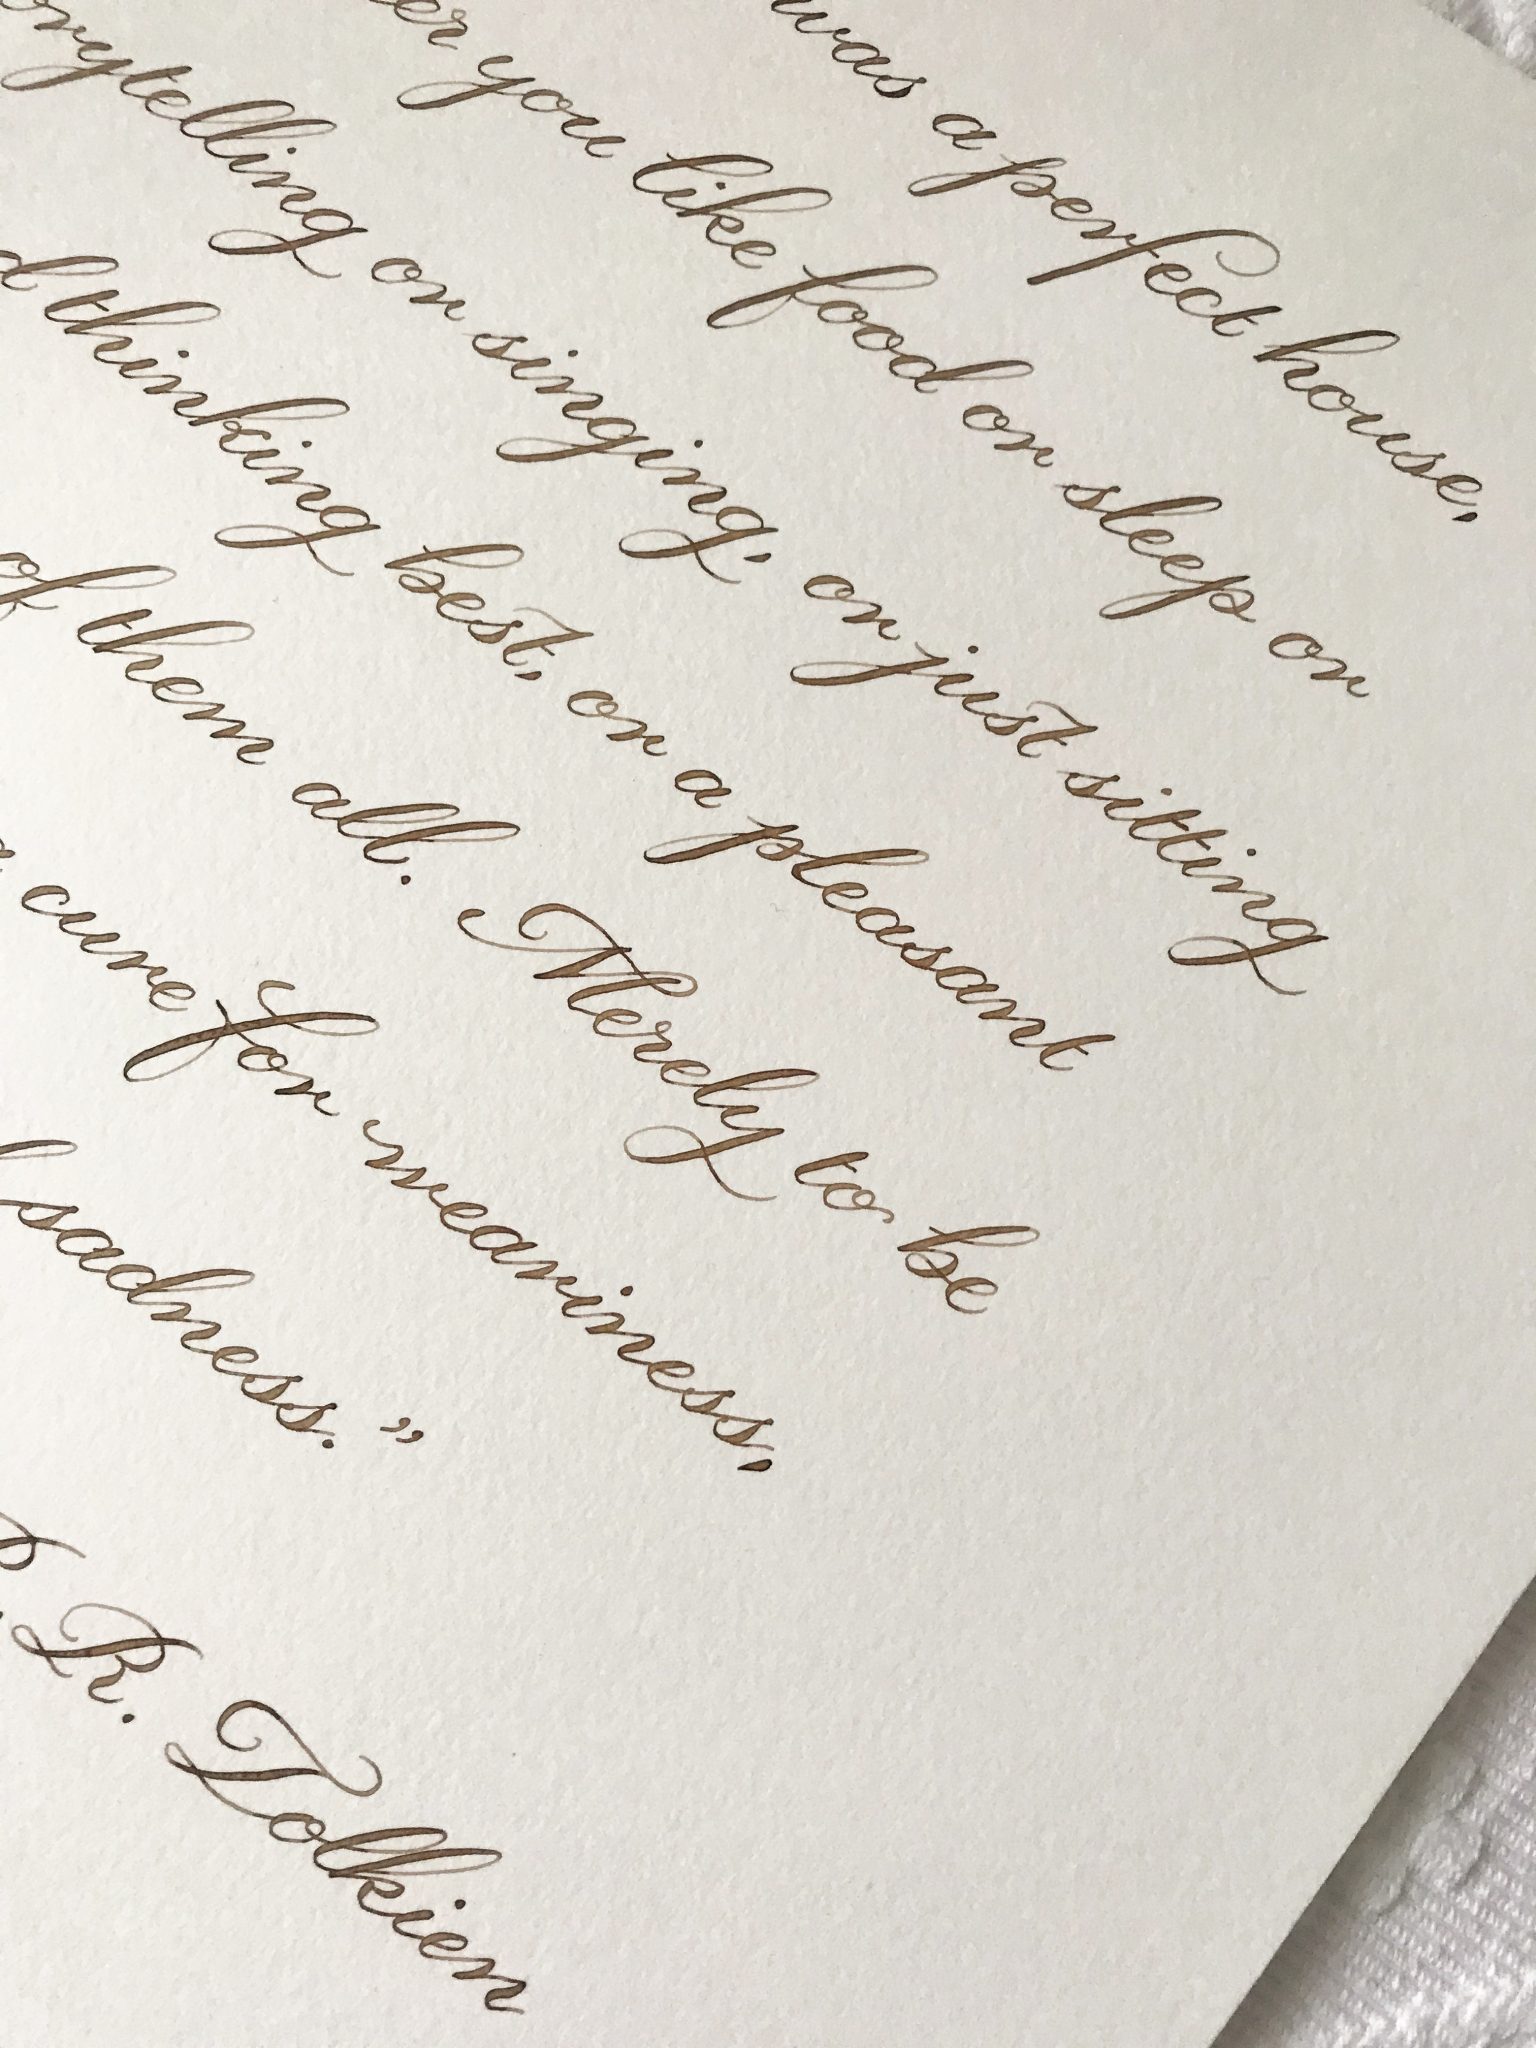 was a perfect house,
er you like food or sleep or
orytelling or singing, or just sitting
d thinking best, or a pleasant
of them all. Merely to be
cure for weariness,
sadness.”
R. R. Tolkien